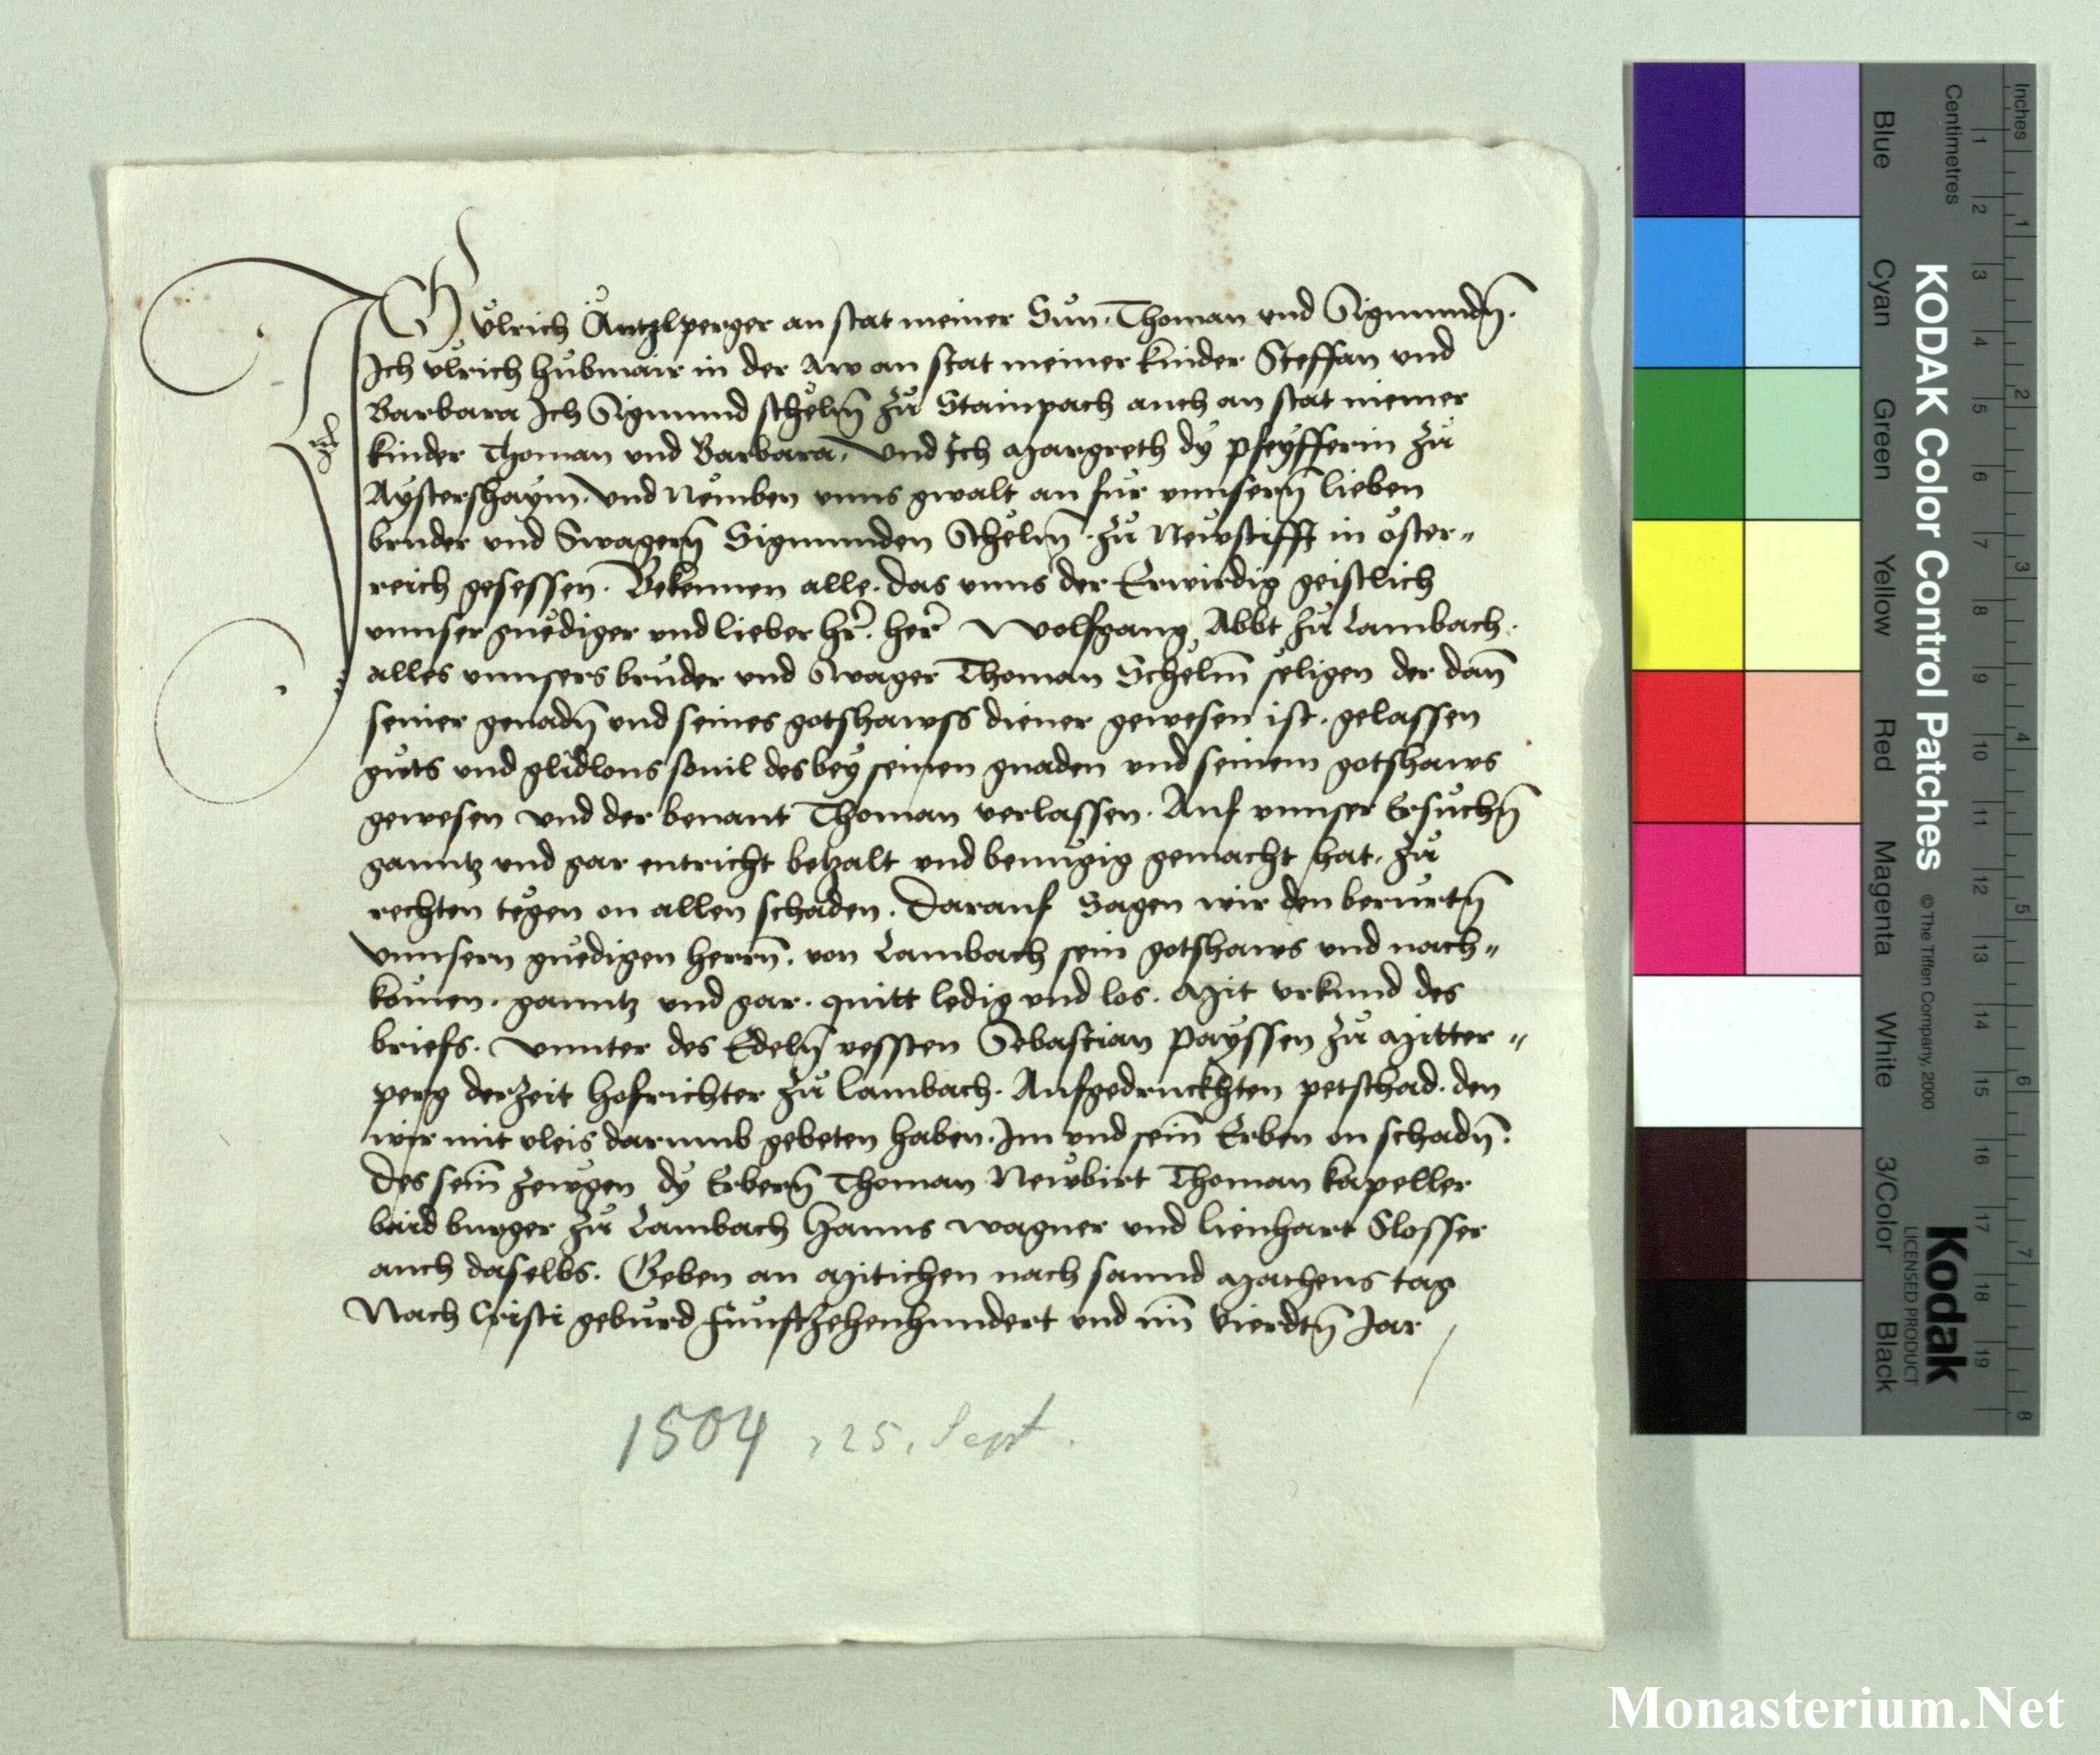 Ich Ůlrich Äntzlperger an stat meiner Sůn. Thoman vnd Sigmundn̄.
Ich Ůlrich hůbmair in der Aw an stat meiner kinder Steffan vnd
Barbara Ich Sigmund schelm̄ zů Stainpach auch an stat meiner
kinder Thoman vnd Barbara. Vnd Ich Margreth dÿ Pfeÿfferin zů
Aÿstershaÿm. Vnd Nemben vnns gwalt an für vnnsern̄ lieben
bruder vnd Swagern̄ Sigmunden Schelm̄. zů Newstifft in öster„
reich gesessen. Bekennen alle. das vnns der Erwirdig geistlich
vnnser gnediger vnd lieber hr̄. her̄ Wolfgang Abbt zů Lambach.
alles vnnsers brůder vnd Swager Thoman Schelm̄ seligen der dan̄
seiner genadn̄ vnd seines gotshawss diener gewesen ist. gelassen
gůts vnd glidlons souil des beÿ seinen gnaden vnd seinem gotshaws
gewesen vnd der benant Thoman verlassen. Auf vnnser Ersůchn̄
ganntz vnd gar entricht betzalt vnd benůgig gemacht hat. zů
rechten tegen on allen schaden. Darauf Sagen wir den berürtn̄
Vnnsern gnedigen herrn̄. von Lambach sein gotshaws vnd nach„
komen. ganntz vnd gar. quitt ledig vnd los. Mit vrkund des
briefs. Vnnter des Edeln̄ vessten Sebastian Paÿssen zů Mitter„
perg derzeit hofrichter zů lambach. Aufgedruckhten petschad. den
wir mit vleis darumb gebeten haben. Im vnd sein̄ Erben on schadn̄.
Des sein̄ zewgen dÿ Erbern̄ Thoman Newbirt Thoman kapeller
baid burger zů Lambach Hanns wagner vnd lienhart Slosser
auch daselbs. Geben an Mitichen nach sannd Matheus tag
Nach Cristi gebůrd Fünftzehenhundert vnd im̄ Vierdtn̄ Jar
1504, 25. Sept.
Inches
Centimetres
1 2 3 4 5 6 7 8
1 2 3 4 5 6 7 8 9 10 11 12 13 14 15 16 17 18 19
KODAK Color Control Patches
© The Tiffen Company, 2000
Kodak
LICENSED PRODUCT
Blue
Cyan
Green
Yellow
Red
Magenta
White
3/Color
Black
Monasterium.Net